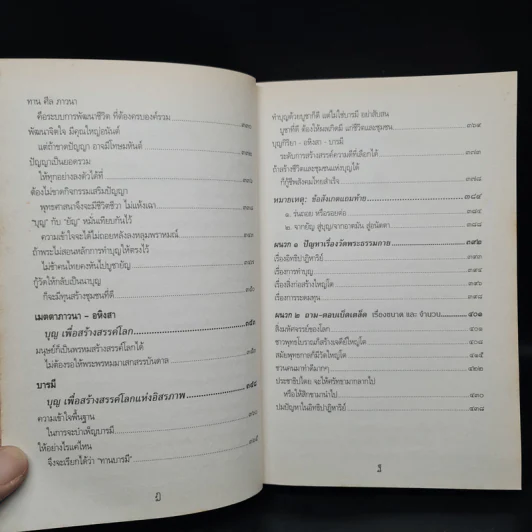 ทาน ศีล ภาวนา
คือระบบการพัฒนาชีวิต ที่ต้องครบองค์รวม
พัฒนาจิตใจ มีคุณใหญ่อนันต์
แต่ถ้าขาดปัญญา อาจมีโทษมหันต์
ปัญญาเป็นยอดรวม
ให้ทุกอย่างลงตัวได้ที่
ต้องไม่ขาดกิจกรรมเสริมปัญญา
พุทธศาสนาจึงจะมีชีวิตชีวา ไม่แห้งเฉา
"บุญ" กับ "ยัญ" หมั่นเทียบกันไว้
ความเข้าใจจะได้ไม่ถอยหลังลงหลุมพราหมณ์
ถ้าพระไม่สอนหลักการทำบุญให้ตรงไว้
ไม่ช้าคนไทยคงหันไปบูชายัญ
กู้วัดให้กลับเป็นนาบุญ
ก็จะมีทุนสร้างชุมชนที่ดี
เมตตาภาวนา - อหิงสา
บุญ เพื่อสร้างสรรค์โลก
มนุษย์ก็เป็นพรหมสร้างสรรค์โลกได้
ไม่ต้องรอให้พระพรหมมาเสกสรรบันดาล
บารมี
บุญ เพื่อสร้างสรรค์โลกแห่งอิสรภาพ
ความเข้าใจพื้นฐาน
ในการจะบำเพ็ญบารมี
ให้อย่างไรแค่ไหน
จึงจะเรียกได้ว่า "ทานบารมี"
ทำบุญด้วยบูชาก็ดี แต่ไม่ใช่บารมี อย่าสับสน
บูชาที่ดี ต้องให้ผลเกิดมี แก่ชีวิตและชุมชน ๓๖๔
บุญกิริยา - อหิงสา - บารมี
ระดับการสร้างสรรค์ความดีที่เลือกได้
ถ้าสร้างชีวิตและชุมชนแห่งบุญได้
ก็กู้ชีพสังคมไทยสำเร็จ
หมายเหตุ: ข้อสังเกตแถมท้าย ๓๘๔
๑. ร่นถอย หรือรอยต่อ
๒. จากยัญ สู่บุญ/จากอาตมัน สู่อนัตตา
ผนวก ๑ ปัญหาเรื่องวัดพระธรรมกาย ๓๙๒
เรื่องอิทธิปาฏิหาริย์
เรื่องการทำบุญ
เรื่องสิ่งก่อสร้างใหญ่โต
เรื่องการระดมทุน
ผนวก ๒ ถาม-ตอบเบ็ดเตล็ด เรื่องขนาด และ จำนวน ๔๐๑
สิ่งมหัศจรรย์ของโลก
ชาวพุทธโบราณก็สร้างเจดีย์ใหญ่โต
สมัยพุทธกาลก็มีวัดใหญ่โต ๔๑๕
ชวนคนมาทำดีมากๆ ๔๒๒
ประชาธิปไตย จะให้พรัทธามากลากไป
หรือให้สิกขามานำไป ๔๓๐
ปมปัญหาในอิทธิปาฏิหาริย์ ๔๓๘